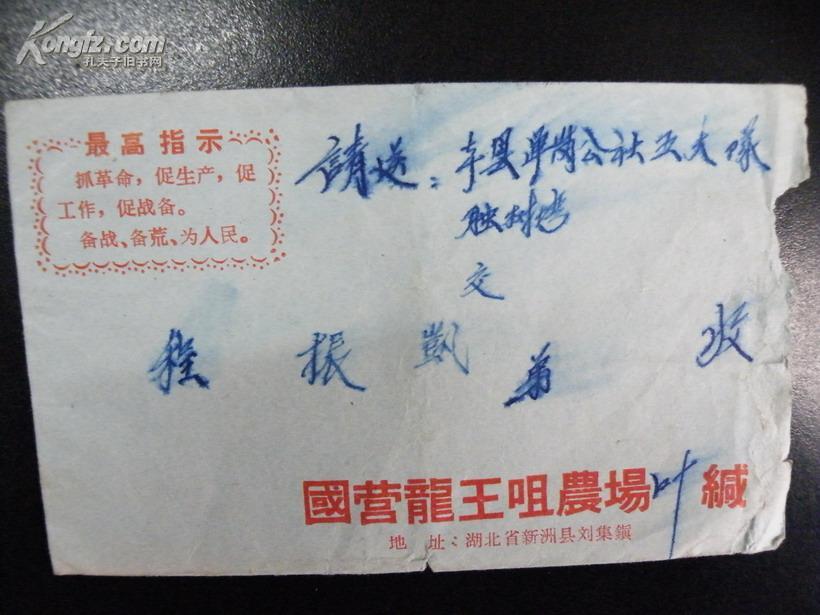 Kongfz.com
孔夫子旧书网
最高指示
抓革命，促生产，促
工作，促战备。
备战、备荒、为人民。
請送：本县单岗公社五大隊
交
程振凱弟收
國营龍王咀農場叶緘
地址：湖北省新洲县刘集鎭